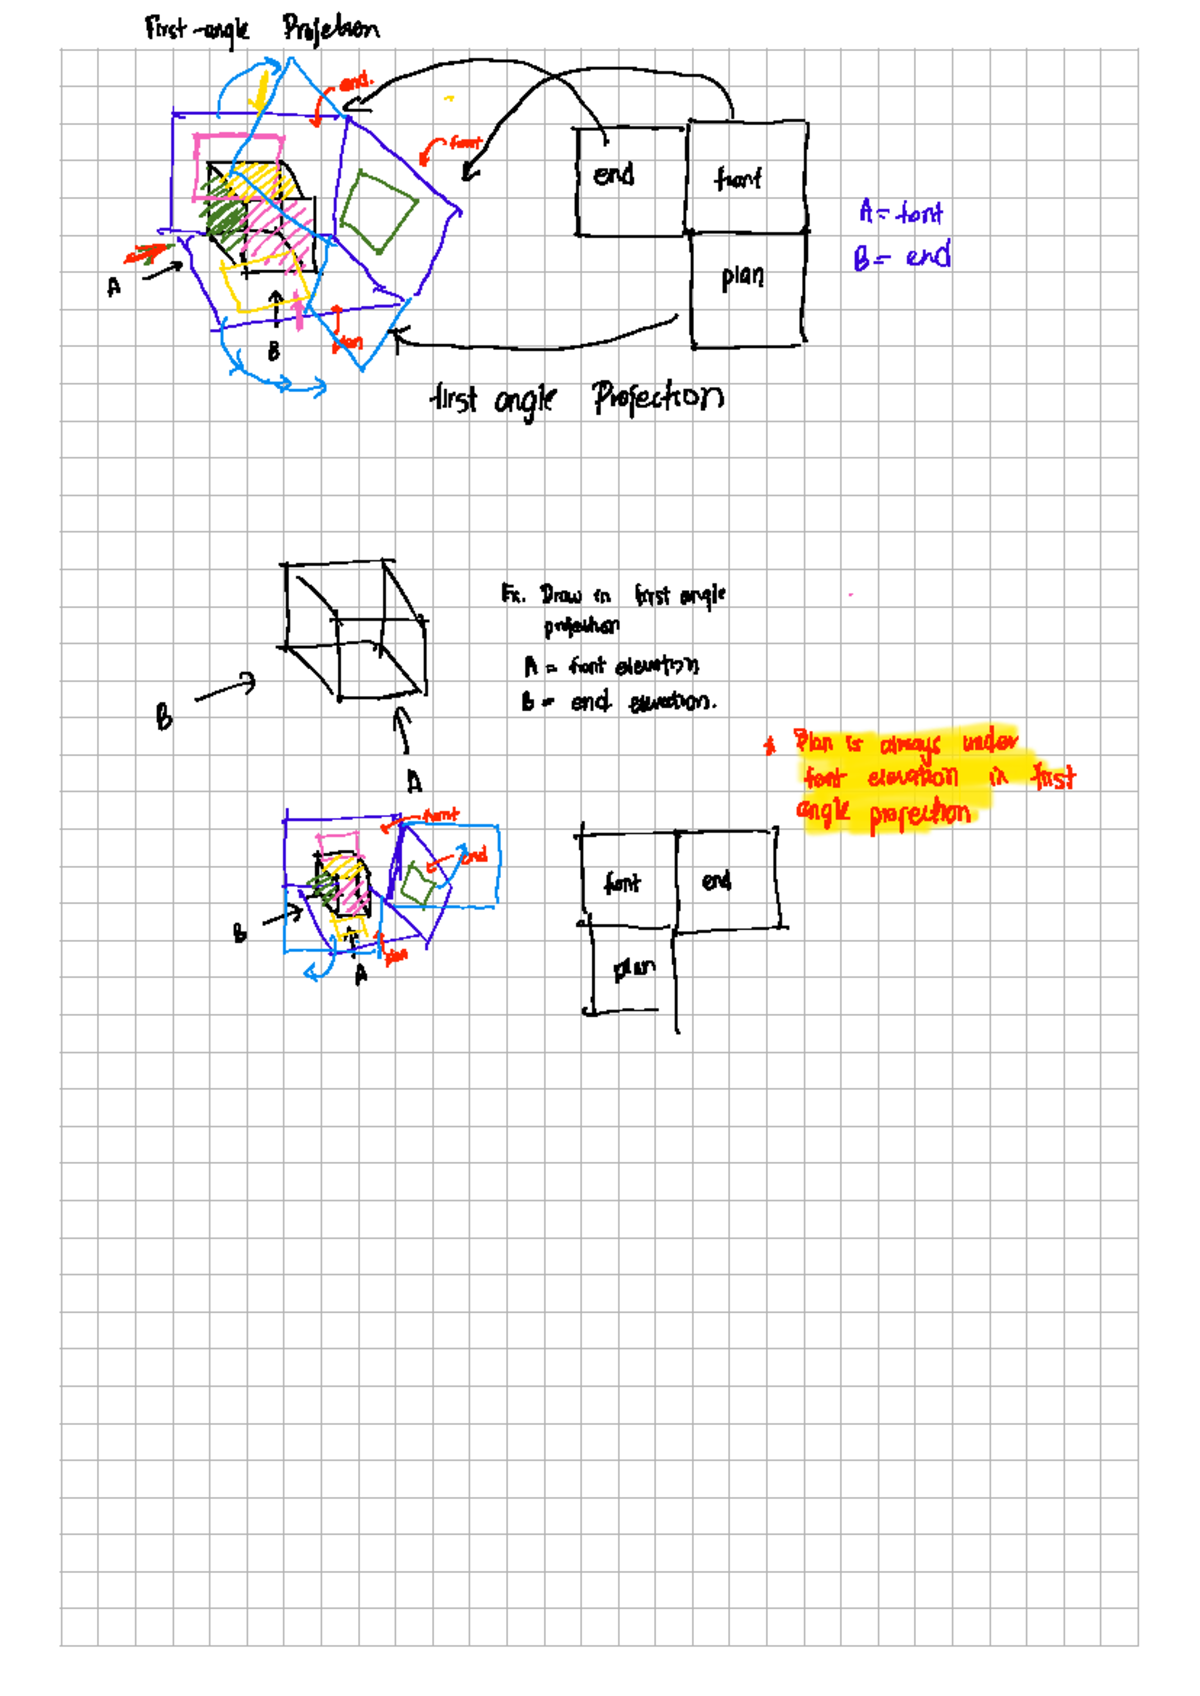 First-angle Projection
end.
front
end
front
A = font
B = end
A
plan
B
plan
first angle Projection
Ex. Draw in first angle
projection
A = font elevation
B = end elevation.
B
A
* Plan is always under
font elevation in first
angle projection
front
end
font
end
B
plan
A
plan